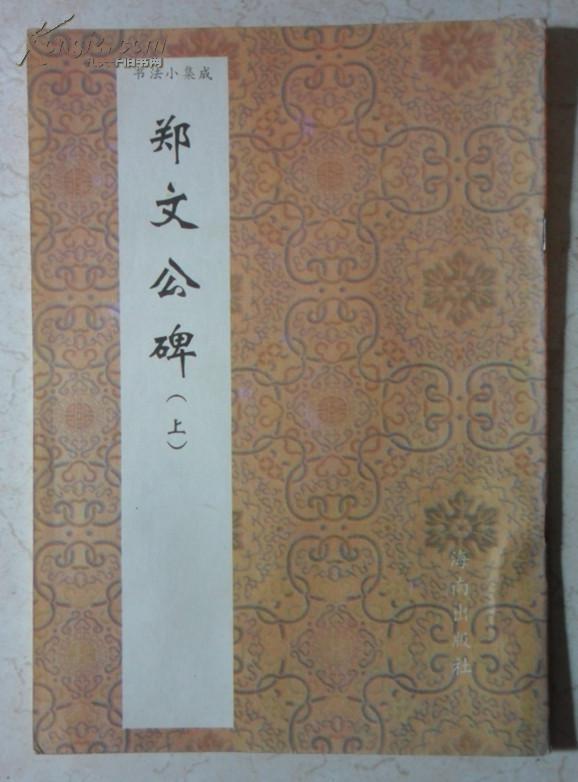 书法小集成
郑文公碑(上)
海南出版社